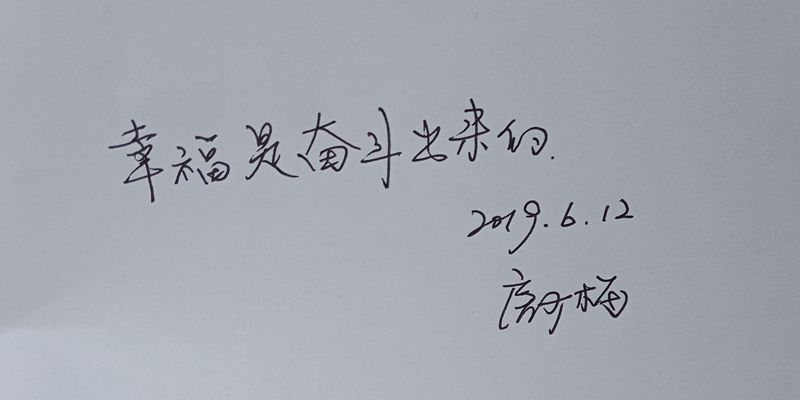 幸福是奋斗出来的.
2019.6.12